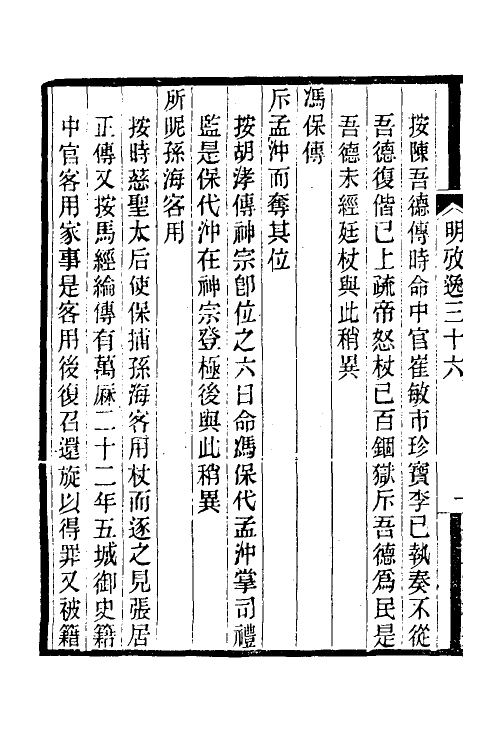 明攷逸三十六
一
按陳吾德傳時命中官崔敏市珍寶李已執奏不從
吾德復偕已上疏帝怒杖已百錮獄斥吾德爲民是
吾德未經廷杖與此稍異
馮保傳
斥孟沖而奪其位
按胡涍傳神宗卽位之六日命馮保代孟沖掌司禮
監是保代沖在神宗登極後與此稍異
所昵孫海客用
按時慈聖太后使保捕孫海客用杖而逐之見張居
正傳又按馬經綸傳有萬厤二十二年五城御史籍
中官客用家事是客用後復召還旋以得罪又被籍